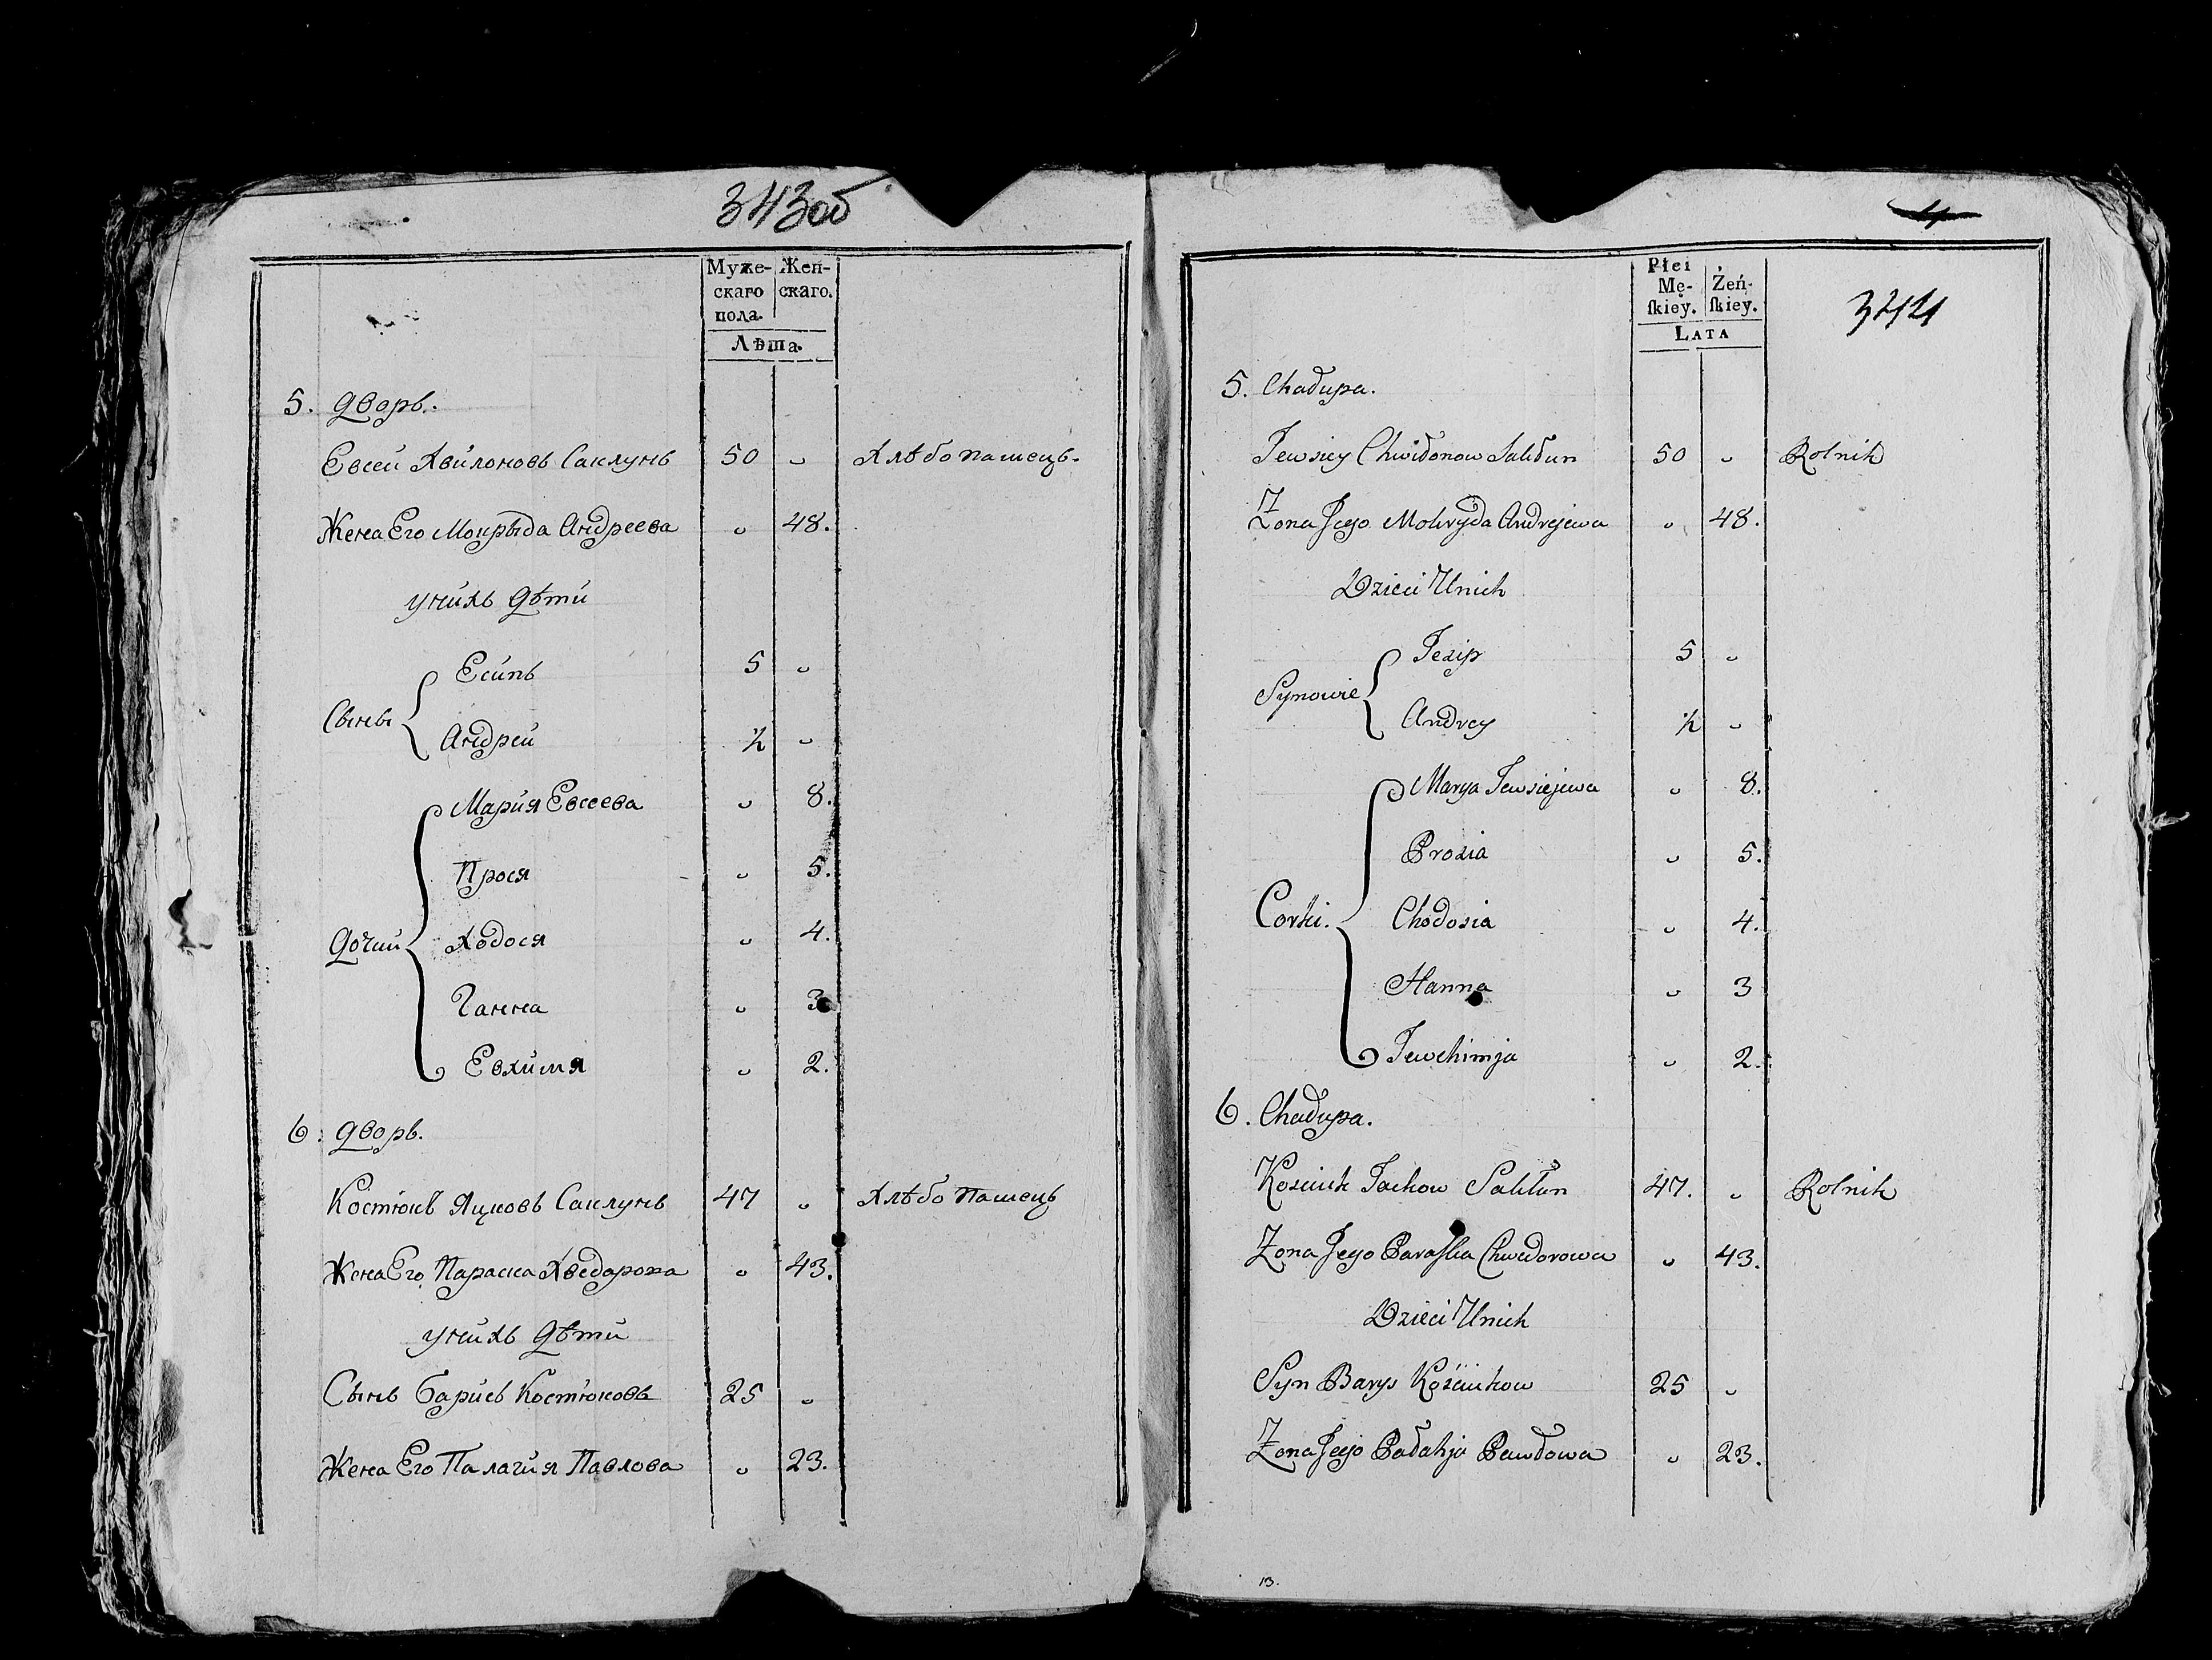 343об
Муже-
скаго
пола.
Жен-
скаго.
Лѣта.
5. Дворъ.
Евсей Хвилоновъ Саклунъ 50 „ Хлѣбопашецъ.
Жена Его Мокрыда Андреева „ 48.
У нихъ Дѣти
Сыны
Есипъ 5 „
Андрей ½ „
Дочки
Мария Евсеева „ 8.
Прося „ 5.
Ходося „ 4.
Ганна „ 3
Евхимя „ 2.
6. Дворъ.
Костюкъ Яцковъ Саклунъ 47 „ Хлѣбопашецъ
Жена Его Параска Хведарова „ 43.
У нихъ Дѣти
Сынъ Барисъ Костюковъ 25 „
Жена Его Палагия Павлова „ 23.
4
344
Płci
Mę-
ſkiey.
Żeń-
ſkiey.
LATA
5. Chałupa.
Jewsiey Chwiłonow Sakłun 50 „ Rolnik
Żona Jego Mokryda Andrejewa „ 48.
Dzieci U nich
Synowie
Jezip 5 „
Andrey ½ „
Corki.
Marya Jewsiejewa „ 8.
Prosia „ 5.
Chodosia „ 4.
Hanna „ 3
Jewchimja „ 2.
6. Chałupa.
Kościuk Jackow Sakłun 47. „ Rolnik
Żona Jego Paraſka Chwedorowa „ 43.
Dzieci U nich
Syn Barys Kościukow 25 „
Żona Jego Pałahja Pawłowa „ 23.
13.